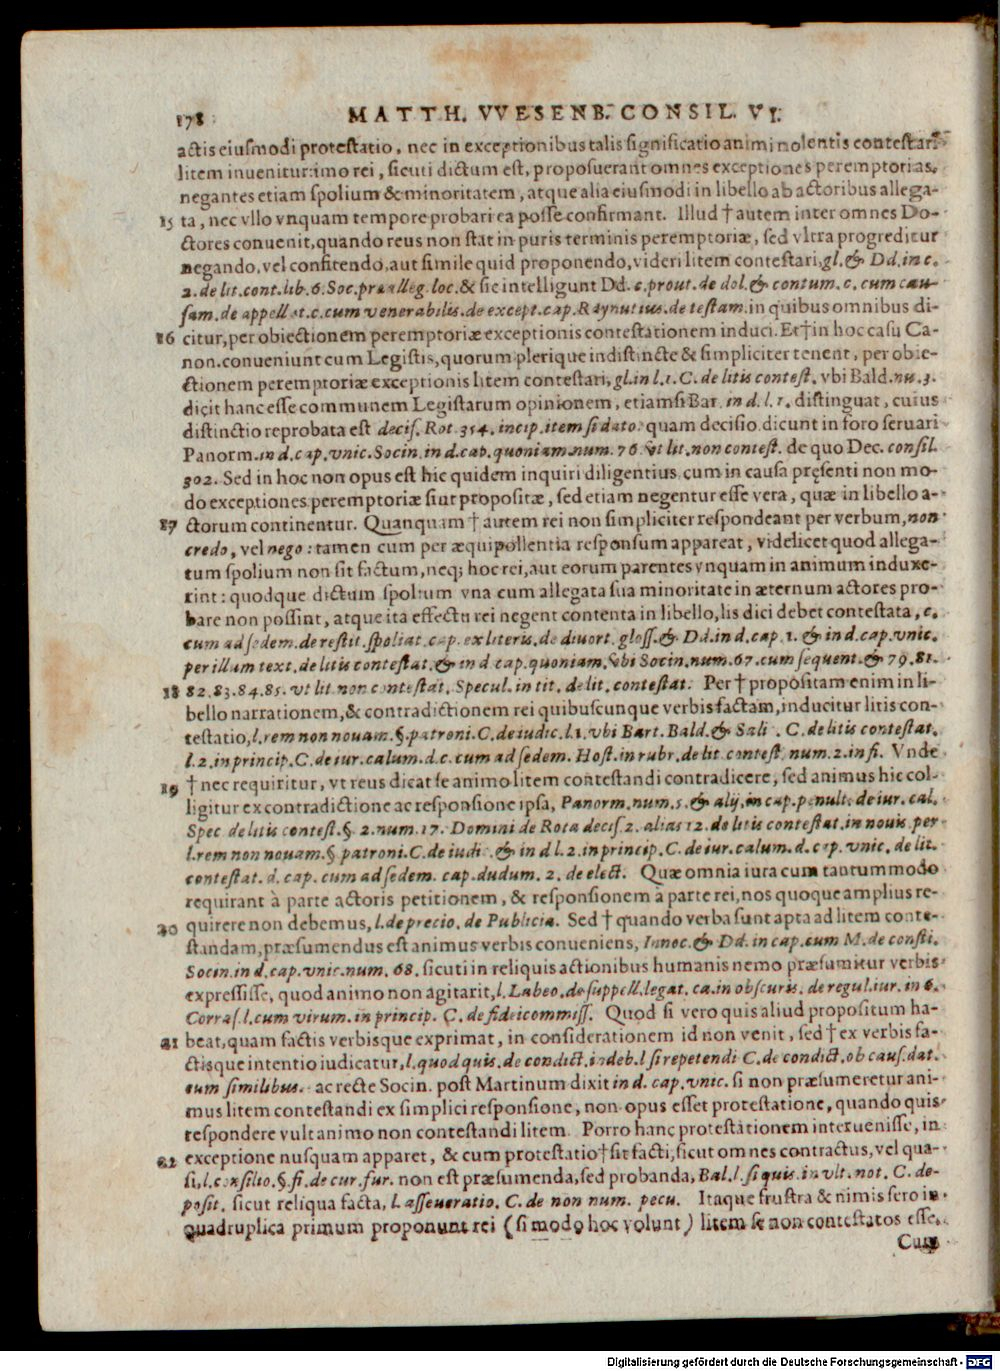 178 MATTH. VVESENB. CONSIL. VI.
actis eiusmodi protestatio, nec in exceptionibus talis significatio animi nolentis contestari
litem inuenitur: imo rei, sicuti dictum est, proposuerant omnes exceptiones peremptorias,
negantes etiam spolium & minoritatem, atque alia eiusmodi in libello ab actoribus allega-
15 ta, nec vllo vnquam tempore probari ea posse confirmant. Illud † autem inter omnes Do-
ctores conuenit, quando reus non stat in puris terminis peremptoriæ, sed vltra progreditur
negando, vel confitendo, aut simile quid proponendo, videri litem contestari, gl. & Dd. in c.
2. de lit. cont. lib. 6. Soc. præalleg. loc. & sic intelligunt Dd. c. prout. de dol. & contum. c. cum cau-
sam. de appellat. c. cum venerabilis. de except. cap. Raynutius. de testam. in quibus omnibus di-
16 citur, per obiectionem peremptoriæ exceptionis contestationem induci. Et † in hoc casu Ca-
non. conueniunt cum Legistis, quorum plerique indistincte & simpliciter tenent, per obie-
ctionem peremptoriæ exceptionis litem contestari, gl. in l. 1. C. de litis contest. vbi Bald. nu. 3.
dicit hanc esse communem Legistarum opinionem, etiamsi Bar. in d. l. 1. distinguat, cuius
distinctio reprobata est decis. Rot. 354. incip. item si dato: quam decisio. dicunt in foro seruari
Panorm. in d. cap. vnic. Socin. in d. cap. quoniam. num. 76. vt lit. non contest. de quo Dec. consil.
302. Sed in hoc non opus est hic quidem inquiri diligentius, cum in causa pręsenti non mo-
do exceptiones peremptoriæ sint propositæ, sed etiam negentur esse vera, quæ in libello a-
17 ctorum continentur. Quanquam † autem rei non simpliciter respondeant per verbum, non
credo, vel nego: tamen cum per æquipollentia responsum appareat, videlicet quod allega-
tum spolium non sit factum, neq; hoc rei, aut eorum parentes vnquam in animum induxe-
rint: quodque dictum spolium vna cum allegata sua minoritate in æternum actores pro-
bare non possint, atque ita effectu rei negent contenta in libello, lis dici debet contestata, c.
cum ad sedem. de restit. spoliat. cap. ex literis. de diuort. gloss. & Dd. in d. cap. 1. & in d. cap. vnic.
per illum text. de litis contestat. & in d. cap. quoniam, vbi Socin. num. 67. cum sequent. & 79. 81.
18 82. 83. 84. 85. vt lit. non contestat. Specul. in tit. de lit. contestat. Per † propositam enim in li-
bello narrationem, & contradictionem rei quibuscunque verbis factam, inducitur litis con-
testatio, l. rem non nouam. §. patroni. C. de iudic. l. 1. vbi Bart. Bald. & Sali. C. de litis contestat.
l. 2. in princip. C. de iur. calum. d. c. cum ad sedem. Host. in rubr. de lit. contest. num. 2. in fi. Vnde
19 † nec requiritur, vt reus dicat se animo litem contestandi contradicere, sed animus hic col-
ligitur ex contradictione ac responsione ipsa, Panorm. num. 5. & alij, in cap. penult. de iur. cal.
Spec. de litis contest. §. 2. num. 17. Domini de Rota decis. 2. alias 12. de litis contestat. in nouis per
l. rem non nouam. §. patroni. C. de iudi. & in d. l. 2. in princip. C. de iur. calum. d. cap. vnic. de lit.
contestat. d. cap. cum ad sedem. cap. dudum. 2. de elect. Quæ omnia iura cum tantummodo
requirant à parte actoris petitionem, & responsionem à parte rei, nos quoque amplius re-
20 quirere non debemus, l. de precio. de Publicia. Sed † quando verba sunt apta ad litem conte-
standam, præsumendus est animus verbis conueniens, Innoc. & Dd. in cap. cum M. de consti.
Socin. in d. cap. vnic. num. 68. sicuti in reliquis actionibus humanis nemo præsumitur verbis
expressisse, quod animo non agitarit, l. Labeo. de suppell. legat. ca. in obscuris. de regul. iur. in 6.
Corras. l. cum virum. in princip. C. de fideicommiss. Quod si vero quis aliud propositum ha-
21 beat, quam factis verbisque exprimat, in considerationem id non venit, sed † ex verbis fa-
ctisque intentio iudicatur, l. quod quis. de condict. indeb. l. si repetendi C. de condict. ob caus. dat.
cum similibus. ac recte Socin. post Martinum dixit in d. cap. vnic. si non præsumeretur ani-
mus litem contestandi ex simplici responsione, non opus esset protestatione, quando quis
respondere vult animo non contestandi litem. Porro hanc protestationem interuenisse, in
22 exceptione nusquam apparet, & cum protestatio † sit facti, sicut omnes contractus, vel qua-
si, l. consilio. §. fi. de cur. fur. non est præsumenda, sed probanda, Bal. l. si quis. in vlt. not. C. de-
posit. sicut reliqua facta, l. asseueratio. C. de non num. pecu. Itaque frustra & nimis sero in
quadruplica primum proponunt rei (si modo hoc volunt) litem se non contestatos esse.
Cum
Digitalisierung gefördert durch die Deutsche Forschungsgemeinschaft - DFG